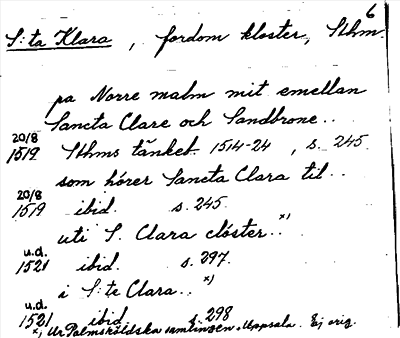 6
S:ta Klara, fordom kloster, Sthm.
pa Norre malm mit emellan
Sancta Clare och Sandbrone..
20/8
1519 Sthms tänkeb. 1514-24, s. 245.
som hörer Sancta Clara til..
20/8
1519 ibid. s. 245.
uti S. Clara clöster..x)
u.d.
1521 ibid. s. 297.
i S:te Clara..x)
u.d.
1521 ibid. s. 298
x) Ur Palmsköldska samlingen, Uppsala. Ej orig.